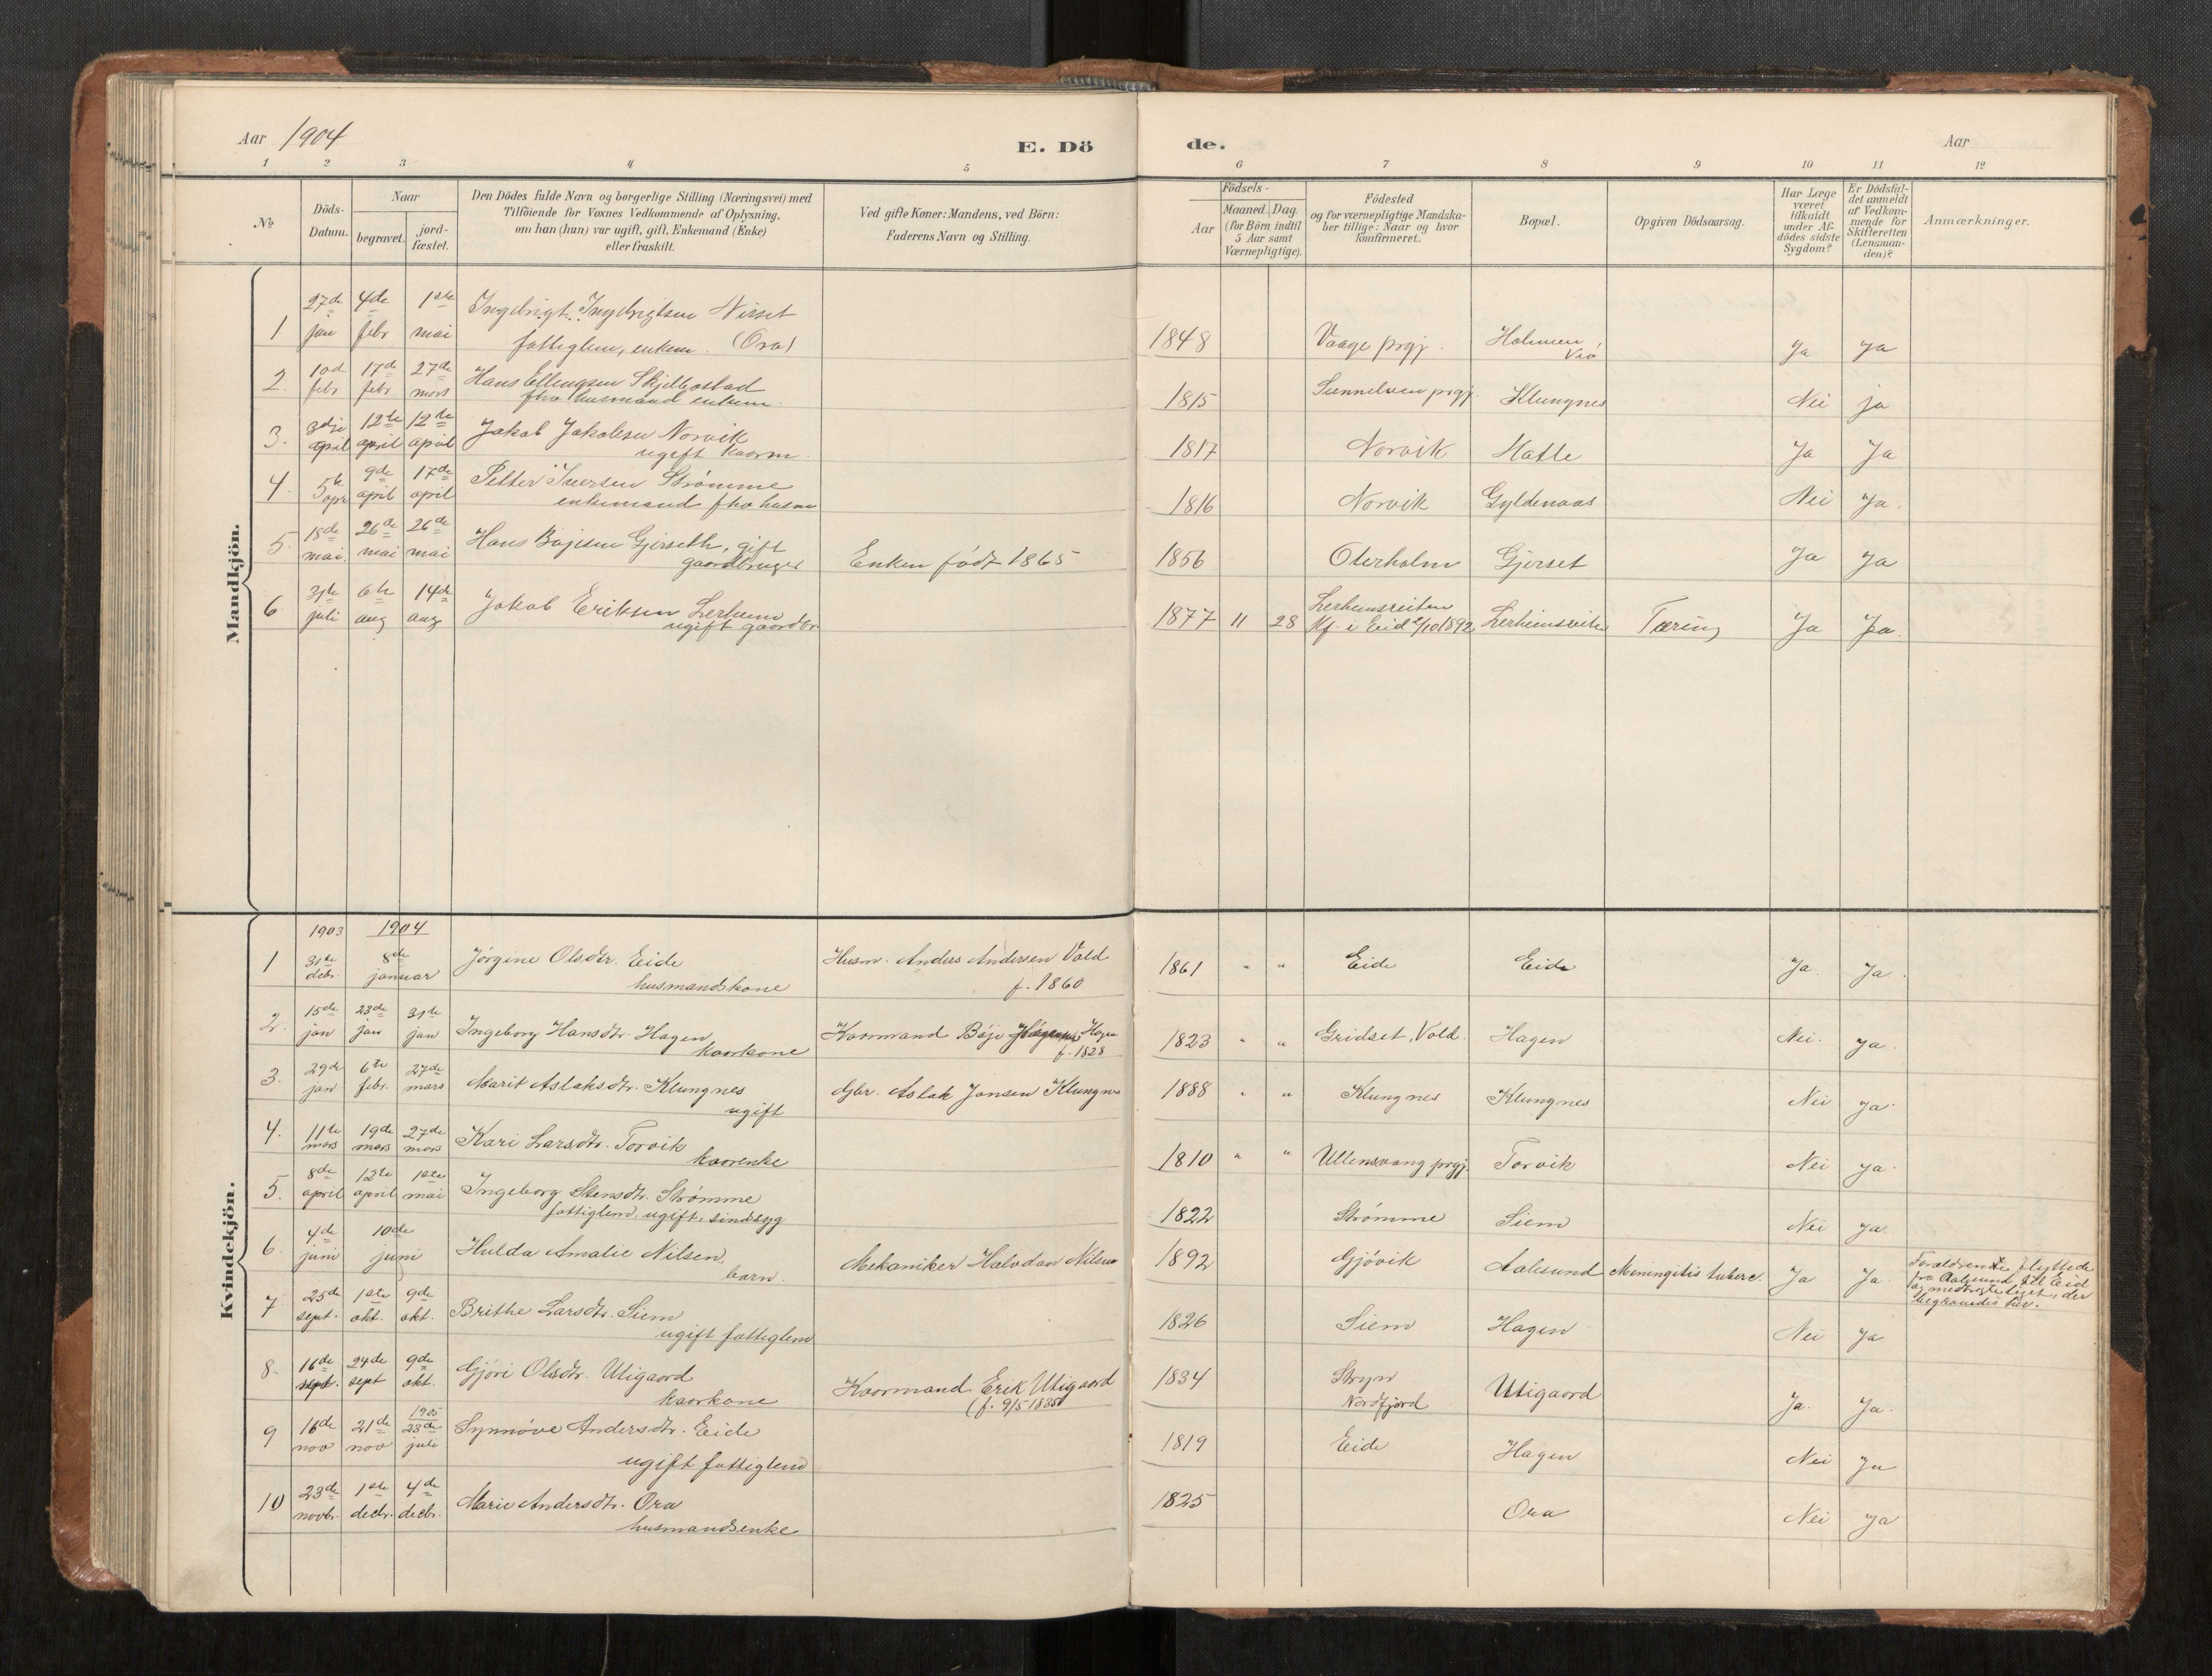 Aar 1904
E. Dö
de.
Aar
1 2 3 4 5 6 7 8 9 10 11 12
№
Döds-
Datum.
Naar
begravet.
jord-
fæstet.
Den Dödes fulde Navn og borgerlige Stilling (Næringsvei) med
Tilföiende for Voxnes Vedkommende af Oplysning,
om han (hun) var ugift, gift, Enkemand (Enke)
eller fraskilt.
Ved gifte Koner: Mandens, ved Börn:
Faderens Navn og Stilling.
Födsels-
Aar
Maaned. Dag.
(for Börn indtil
5 Aar samt
Værnepligtige).
Födested
og for værnepligtige Mandska-
ber tillige: Naar og hvor
konfirmeret.
Bopæl.
Opgiven Dödsaarsag.
Har Læge
været
tilkaldt
under Af-
dödes sidste
Sygdom?
Er Dödsfal-
det anmeldt
af Vedkom-
mende for
Skifteretten
(Lensman-
den)?
Anmærkninger.
Mandkjön.
1 27de jan 4de febr 1ste mai Ingebrigt Ingebrigtsen Nisset
fattiglem, enkem. (Ora) 1848 Vaage prgj. Holmen, Ja Ja
2. 10d febr 17de febr 27de mars Hans Ellingsen Skjelbostad
fhv husmand enkem. 1815 Sunnelven prgj. Klungnes Nei ja
3. 3dje april 12te april 12te april Jakob Jakobsen Norvik
ugift kaarm. 1817 Norvik Hatle Ja Ja
4. 5te apr 9de april 17de april Petter Iversen Strømme
enkemand fhv husm 1816 Norvik Gyldenaas Nei Ja.
5 18de mai. 26de mai 26de mai Hans Bøjesen Gjerseth, gift
gaardbruger Enken født 1865 1856 Oterholm Gjerset Ja Ja
6 31te juli 6te aug 14de aug Jakob Eriksen Lerheim
ugift gaardbr. 1877 11 28 Lerheimsreiten
Kf. i Eid 2/10 1892 Lerheimsreiten Tæring Ja Ja.
Kvindekjön.
1903 1904
1 31te debr. 8de januar Jørgine Olsdtr. Eide
husmandskone Husm. Anders Andersen Vold
f. 1860 1861 " " Eide Eide Ja. Ja.
2. 15de jan 23de jan 31te jan Ingeborg Hansdtr. Hagen
kaarkone Kaarmand Bøje Hagen
f. 1828 1823 " " Gridset, Vold. Hagen Nei. Ja.
3. 29de jan 6te febr. 27de mars Marit Aslaksdtr. Klungnes
ugift Gbr. Aslak Jansen Klungnes 1888 " " Klungnes Klungnes Nei Ja.
4. 11te mars 19de mars 27de mars Kari Larsdtr. Torvik
kaarenke 1810 " " Ullensvang prgj. Torvik Nei Ja.
5. 8de april 12te april 1ste mai Ingeborg Stensdtr. Strømme
fattiglem, ugift, sindssyg 1822 Strømme Siem Nei Ja.
6. 4de juni 10de juni Hulda Amalie Nilsen,
barn. Mekaniker Halvdan Nilsen 1892 Gjøvik Aalesund Meningitis tuberc. Ja Ja. Forældrene flyttede
fra Aalesund til Eid
begravedes her.
7 25de sept. 1ste okt. 9de okt. Brithe Larsdtr. Siem
ugift fattiglem 1826 Siem Hagen Nei Ja
8. 16de sept. 24de sept 9de okt. Gjøri Olsdtr. Utigaard
kaarkone Kaarmand Erik Utigaard
(f. 9/5 1835) 1834 Stryn
Nordfjord Utigaard Ja. Ja.
9 16de nov 21de nov 1905 23de juli Synnøve Andersdtr. Eide
ugift fattiglem 1819 Eide Hagen Nei Ja
10 23de novbr. 1ste decbr. 4de decbr. Marie Andersdtr. Ora
husmandsenke 1825 Ora Nei Ja